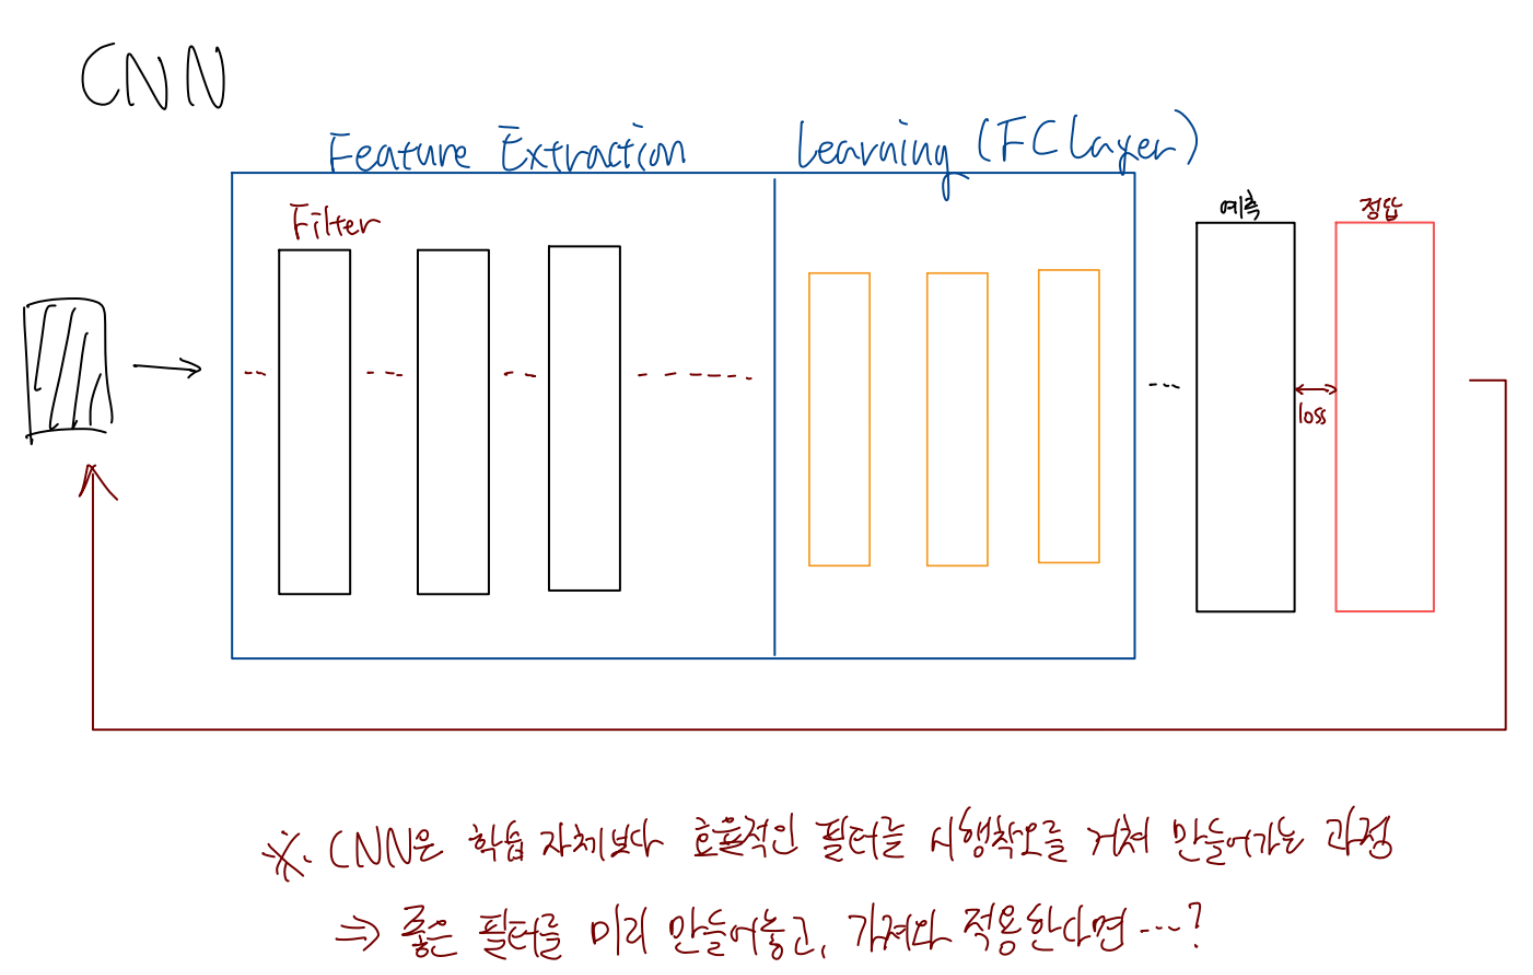 CNN
Feature Extraction
Learning (FC Layer)
Filter
예측
정답
loss
※. CNN은 학습 자체보다 효율적인 필터를 시행착오를 거쳐 만들어가는 과정
⇒ 좋은 필터를 미리 만들어놓고, 가져와 적용한다면…?